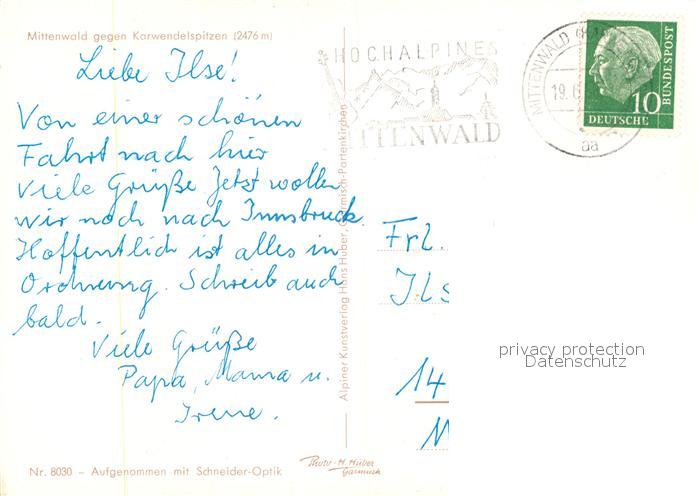 Mittenwald gegen Karwendelspitzen (2476 m)
Liebe Ilse!
Von einer schönen
Fahrt nach hier
Viele Grüße Jetzt wollen
wir noch nach Innsbruck.
Hoffentlich ist alles in
Ordnung. Schreib auch
bald.
Viele Grüße
Papa, Mama u.
Irene.
Nr. 8030 – Aufgenommen mit Schneider-Optik
Alpiner Kunstverlag Hans Huber, Garmisch-Partenkirchen
Photo-H. Huber
Garmisch
HOCHALPINES
MITTENWALD
MITTENWALD
19.6
aa
10
DEUTSCHE
BUNDESPOST
Frl.
Ils
14
M
privacy protection
Datenschutz